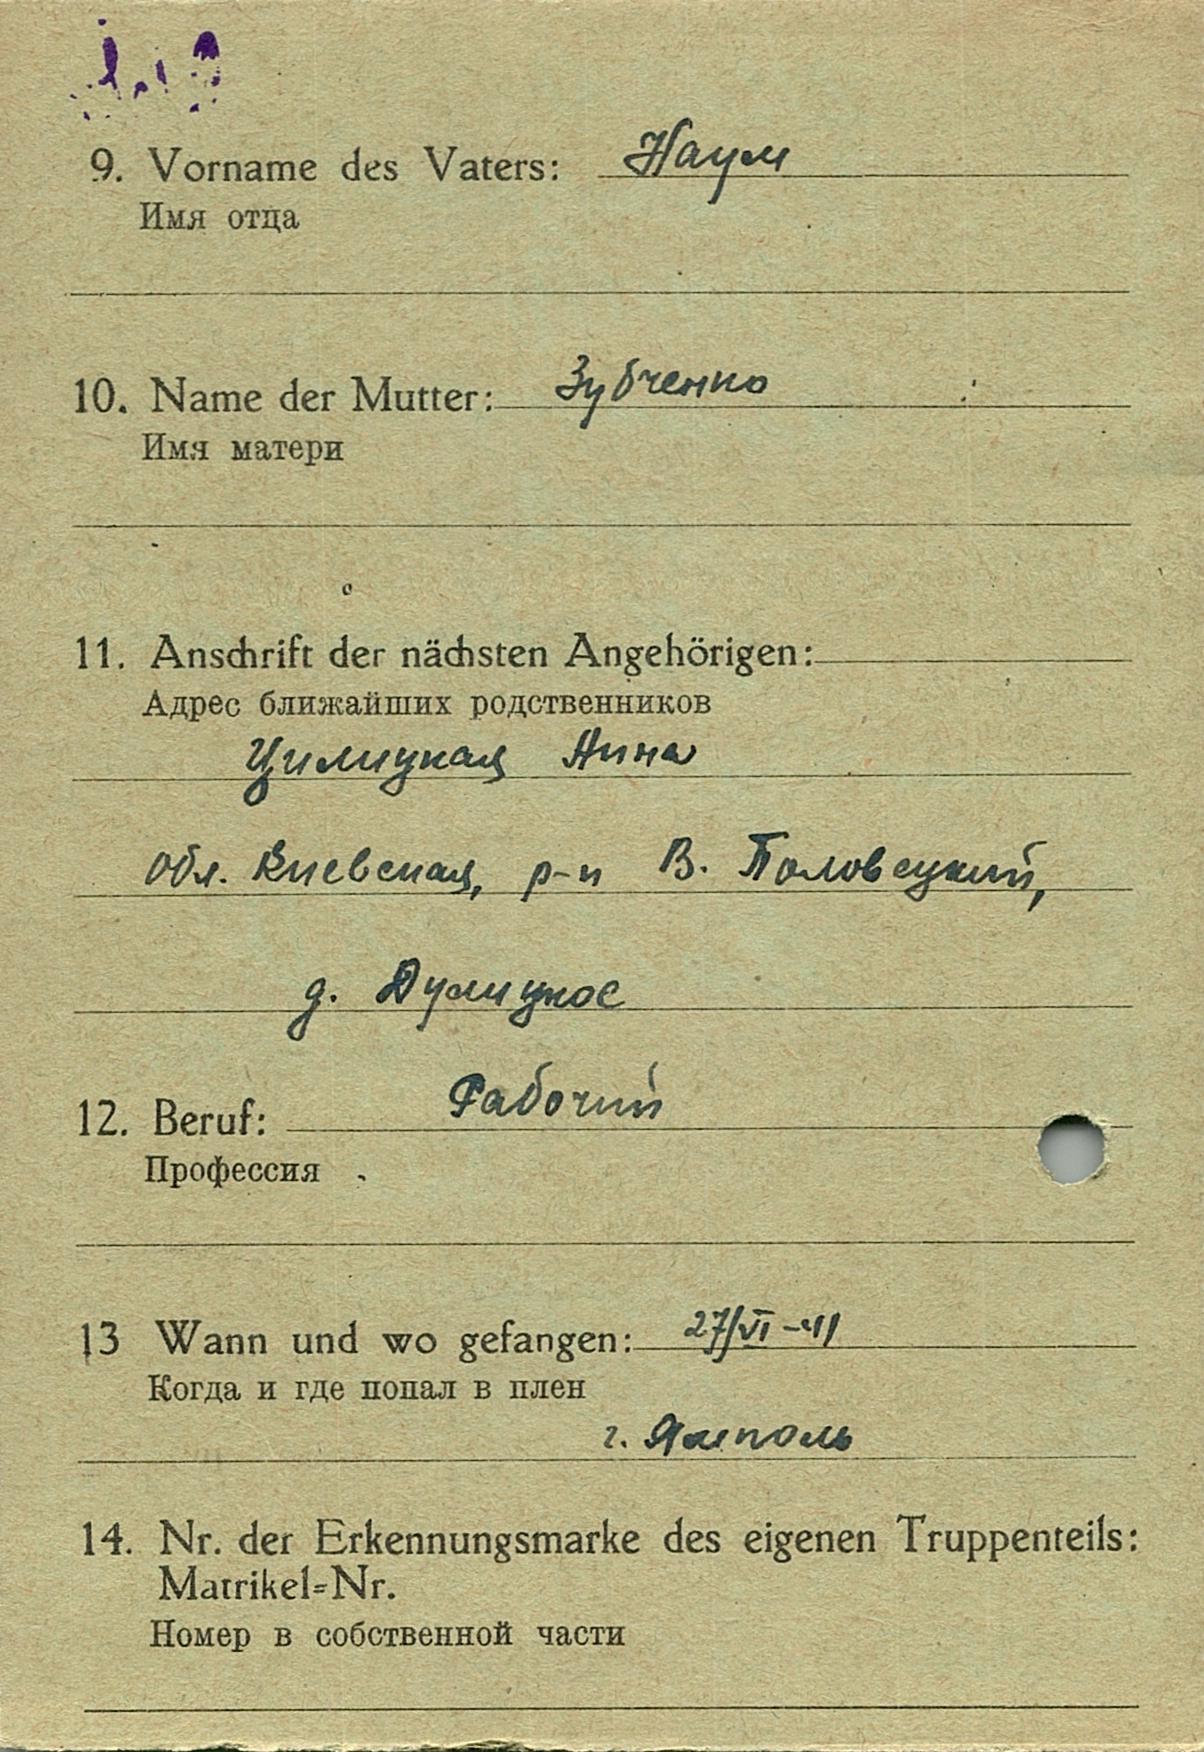 9. Vorname des Vaters: Наум
Имя отца
10. Name der Mutter: Зубченко
Имя матери
11. Anschrift der nächsten Angehörigen:
Адрес ближайших родственников
Цилицкая Анна
обл. Киевская, р-н В. Половецкий,
д. Дулицкое
12. Beruf: Рабочий
Профессия
13 Wann und wo gefangen: 27/VI-41
Когда и где попал в плен
г. Ямполь
14. Nr. der Erkennungsmarke des eigenen Truppenteils:
Matrikel=Nr.
Номер в собственной части